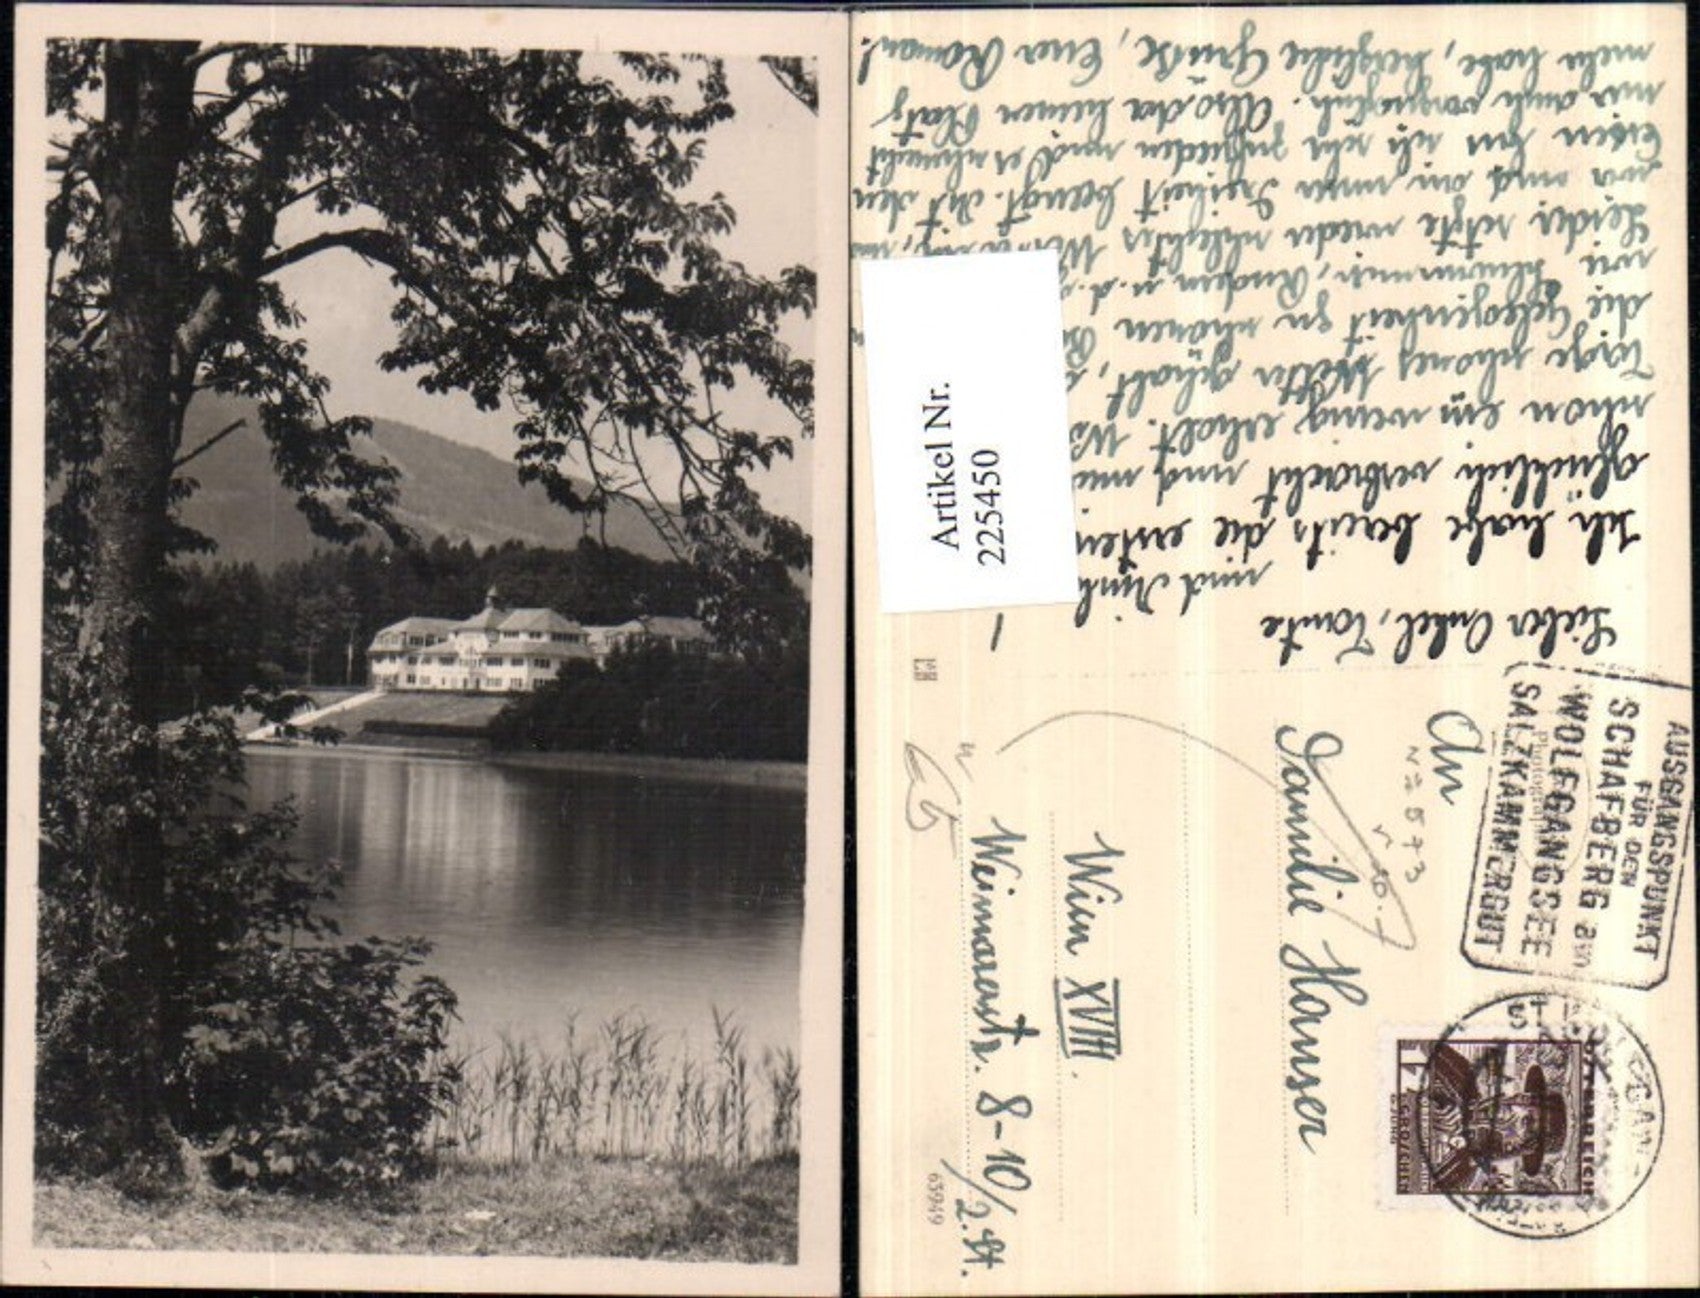 Lieber Onkel, Tante
und
Ich habe bereits die ersten
glücklich verbracht und mich
schon ein wenig erholt.
Tage schönes Wetter gehabt,
die Gelegenheit zu schönen
wie Schwimmen, Rudern u. d.
Leider setzte wieder schlechtes
wir sind in unserer Freiheit beengt. Mit den
Essen bin ich sehr zufrieden und es schmeckt
mir auch vorzüglich. Also da keinen Platz
mehr habe, herzliche Grüße, Euer Roman!
Artikel Nr.
225450
AUSGANGSPUNKT
FÜR DEN
SCHAFBERG am
WOLFGANGSEE
SALZKAMMERGUT
An
Familie Hanser
Wien XVIII.
Weimarerstr. 8-10/2. St.
N 2 5 7 3
ÖSTERREICH
GROSCHEN
63949